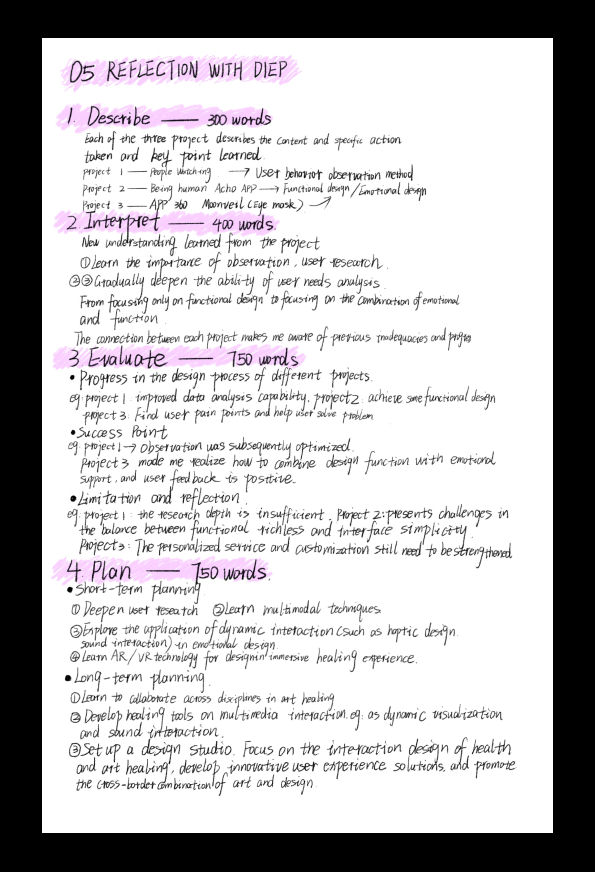 05 REFLECTION WITH DIEP
1. Describe — 300 words
Each of the three project describes the content and specific action
taken and key point learned.
project 1 — People watching → User behavior observation method
Project 2 — Being human Acho APP → Functional design / Emotional design
Project 3 — APP 360 Moonveil (Eye mask) →
2 Interpret — 400 words.
New understanding learned from the project
① Learn the importance of observation, user research.
②③ Gradually deepen the ability of user needs analysis.
From focusing only on functional design to focusing on the combination of emotional
and function.
The connection between each project makes me aware of previous inadequacies and progress
3 Evaluate — 750 words
• Progress in the design process of different projects.
eg: project 1: improved data analysis capability, project 2: achieve some functional design
project 3: Find user pain points and help user solve problem
• Success Point
eg. project 1 → observation was subsequently optimized.
Project 3 made me realize how to combine design function with emotional
support, and user feedback is positive.
• Limitation and reflection.
eg: project 1: the research depth is insufficient, Project 2: presents challenges in
the balance between functional richless and interface simplicity.
Project 3: The personalized service and customization still need to be strengthened.
4. Plan — 750 words.
• Short-term planning
① Deepen user research ② Learn multimodal techniques.
③ Explore the application of dynamic interaction (such as haptic design.
sound interaction) in emotional design.
④ Learn AR/VR technology for designin immersive healing experience.
• Long-term planning.
① Learn to collaborate across disciplines in art healing
② Develop healing tools on multimedia interaction. eg: as dynamic visualization
and sound interaction.
③ Set up a design studio. Focus on the interaction design of health
and art healing, develop innovative user experience solutions, and promote
the cross-border combination of art and design.